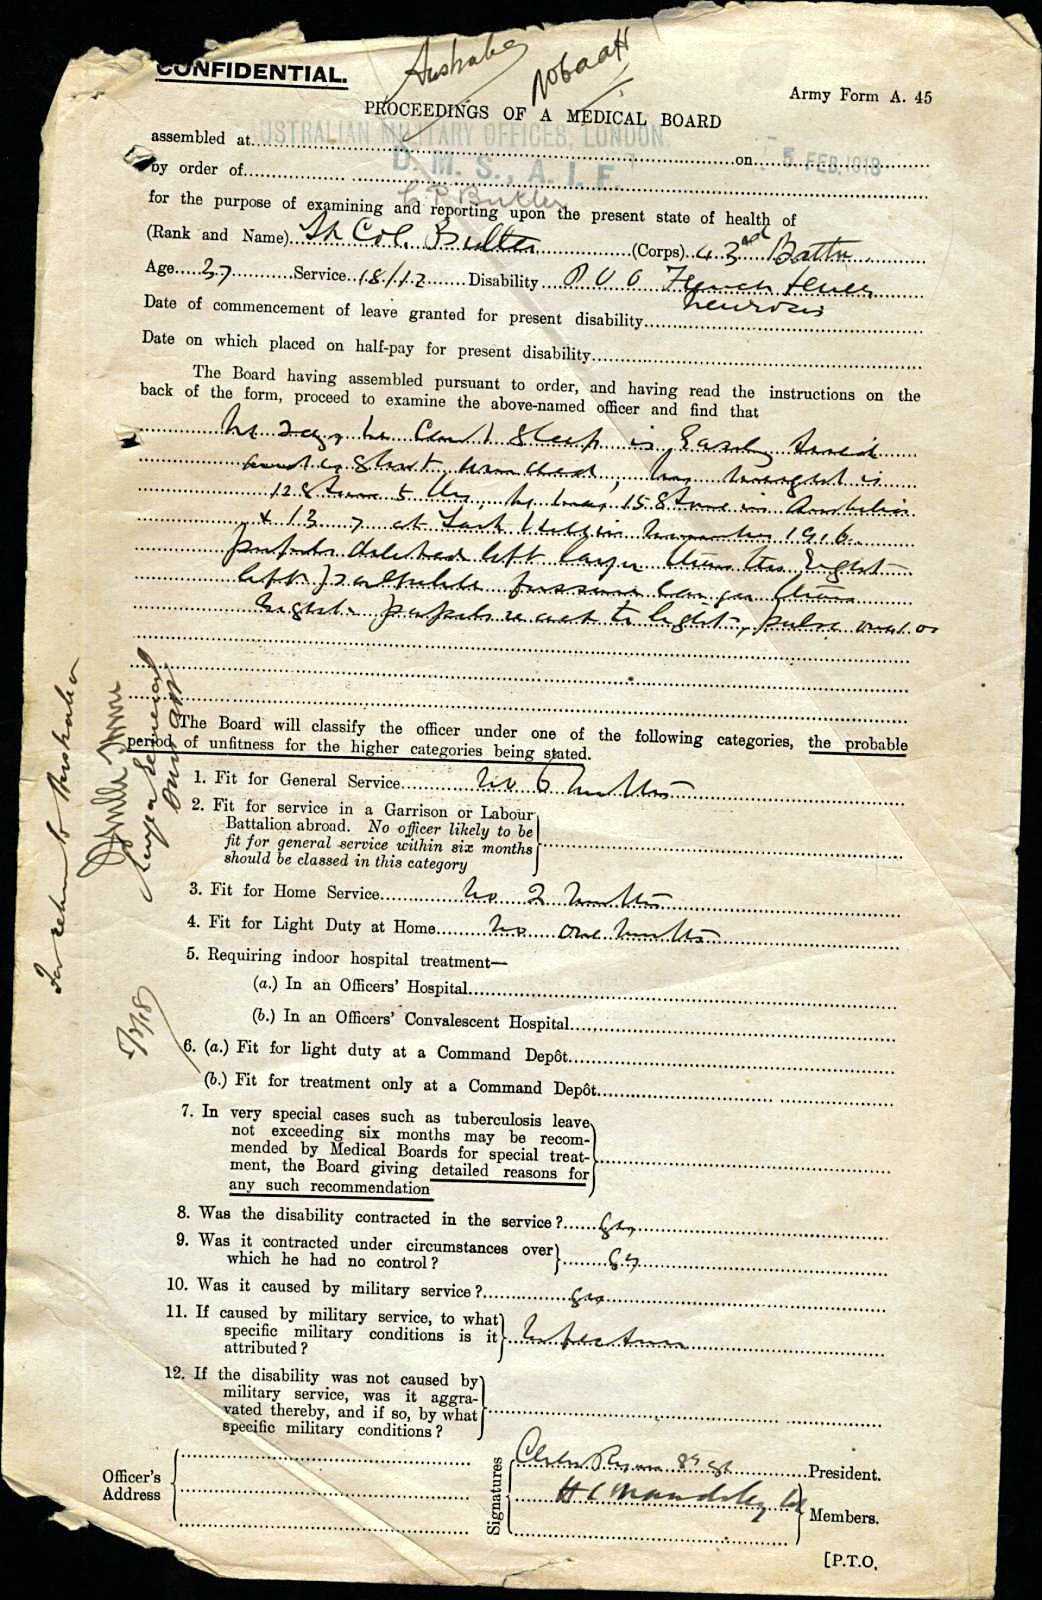 CONFIDENTIAL.
Australia
Army Form A. 45
PROCEEDINGS OF A MEDICAL BOARD
assembled at AUSTRALIAN MILITARY OFFICES, LONDON. on 5 FEB. 1918
by order of D. M. S., A. I. F.
for the purpose of examining and reporting upon the present state of health of
(Rank and Name) Lt Col. Butler (Corps) 43rd Battn
Age 37 Service 18/12 Disability P U O Trench fever
neurosis
Date of commencement of leave granted for present disability
Date on which placed on half-pay for present disability
The Board having assembled pursuant to order, and having read the instructions on the
back of the form, proceed to examine the above-named officer and find that
he says he can't sleep is easily tired
and is short winded, his weight is
12 Stone 5 lbs, he was 15 Stone in Australia
& 13 7 at Lark Hill in November 1916
pupils dilated left larger than the right
left palpebral fissure larger than
right. pupils react to light, pulse over 100
The Board will classify the officer under one of the following categories, the probable
period of unfitness for the higher categories being stated.
1. Fit for General Service no 6 months
2. Fit for service in a Garrison or Labour
Battalion abroad. No officer likely to be
fit for general service within six months
should be classed in this category
3. Fit for Home Service no 2 months
4. Fit for Light Duty at Home no one month
5. Requiring indoor hospital treatment—
(a.) In an Officers' Hospital
(b.) In an Officers' Convalescent Hospital
6. (a.) Fit for light duty at a Command Depôt
(b.) Fit for treatment only at a Command Depôt
7. In very special cases such as tuberculosis leave
not exceeding six months may be recom-
mended by Medical Boards for special treat-
ment, the Board giving detailed reasons for
any such recommendation
8. Was the disability contracted in the service? yes
9. Was it contracted under circumstances over
which he had no control? yes
10. Was it caused by military service? yes
11. If caused by military service, to what
specific military conditions is it
attributed? Infection
12. If the disability was not caused by
military service, was it aggra-
vated thereby, and if so, by what
specific military conditions?
Officer's
Address
Signatures
President.
H C Maudsley Col
Members.
[P.T.O.
For return to Australia
Surgeon General